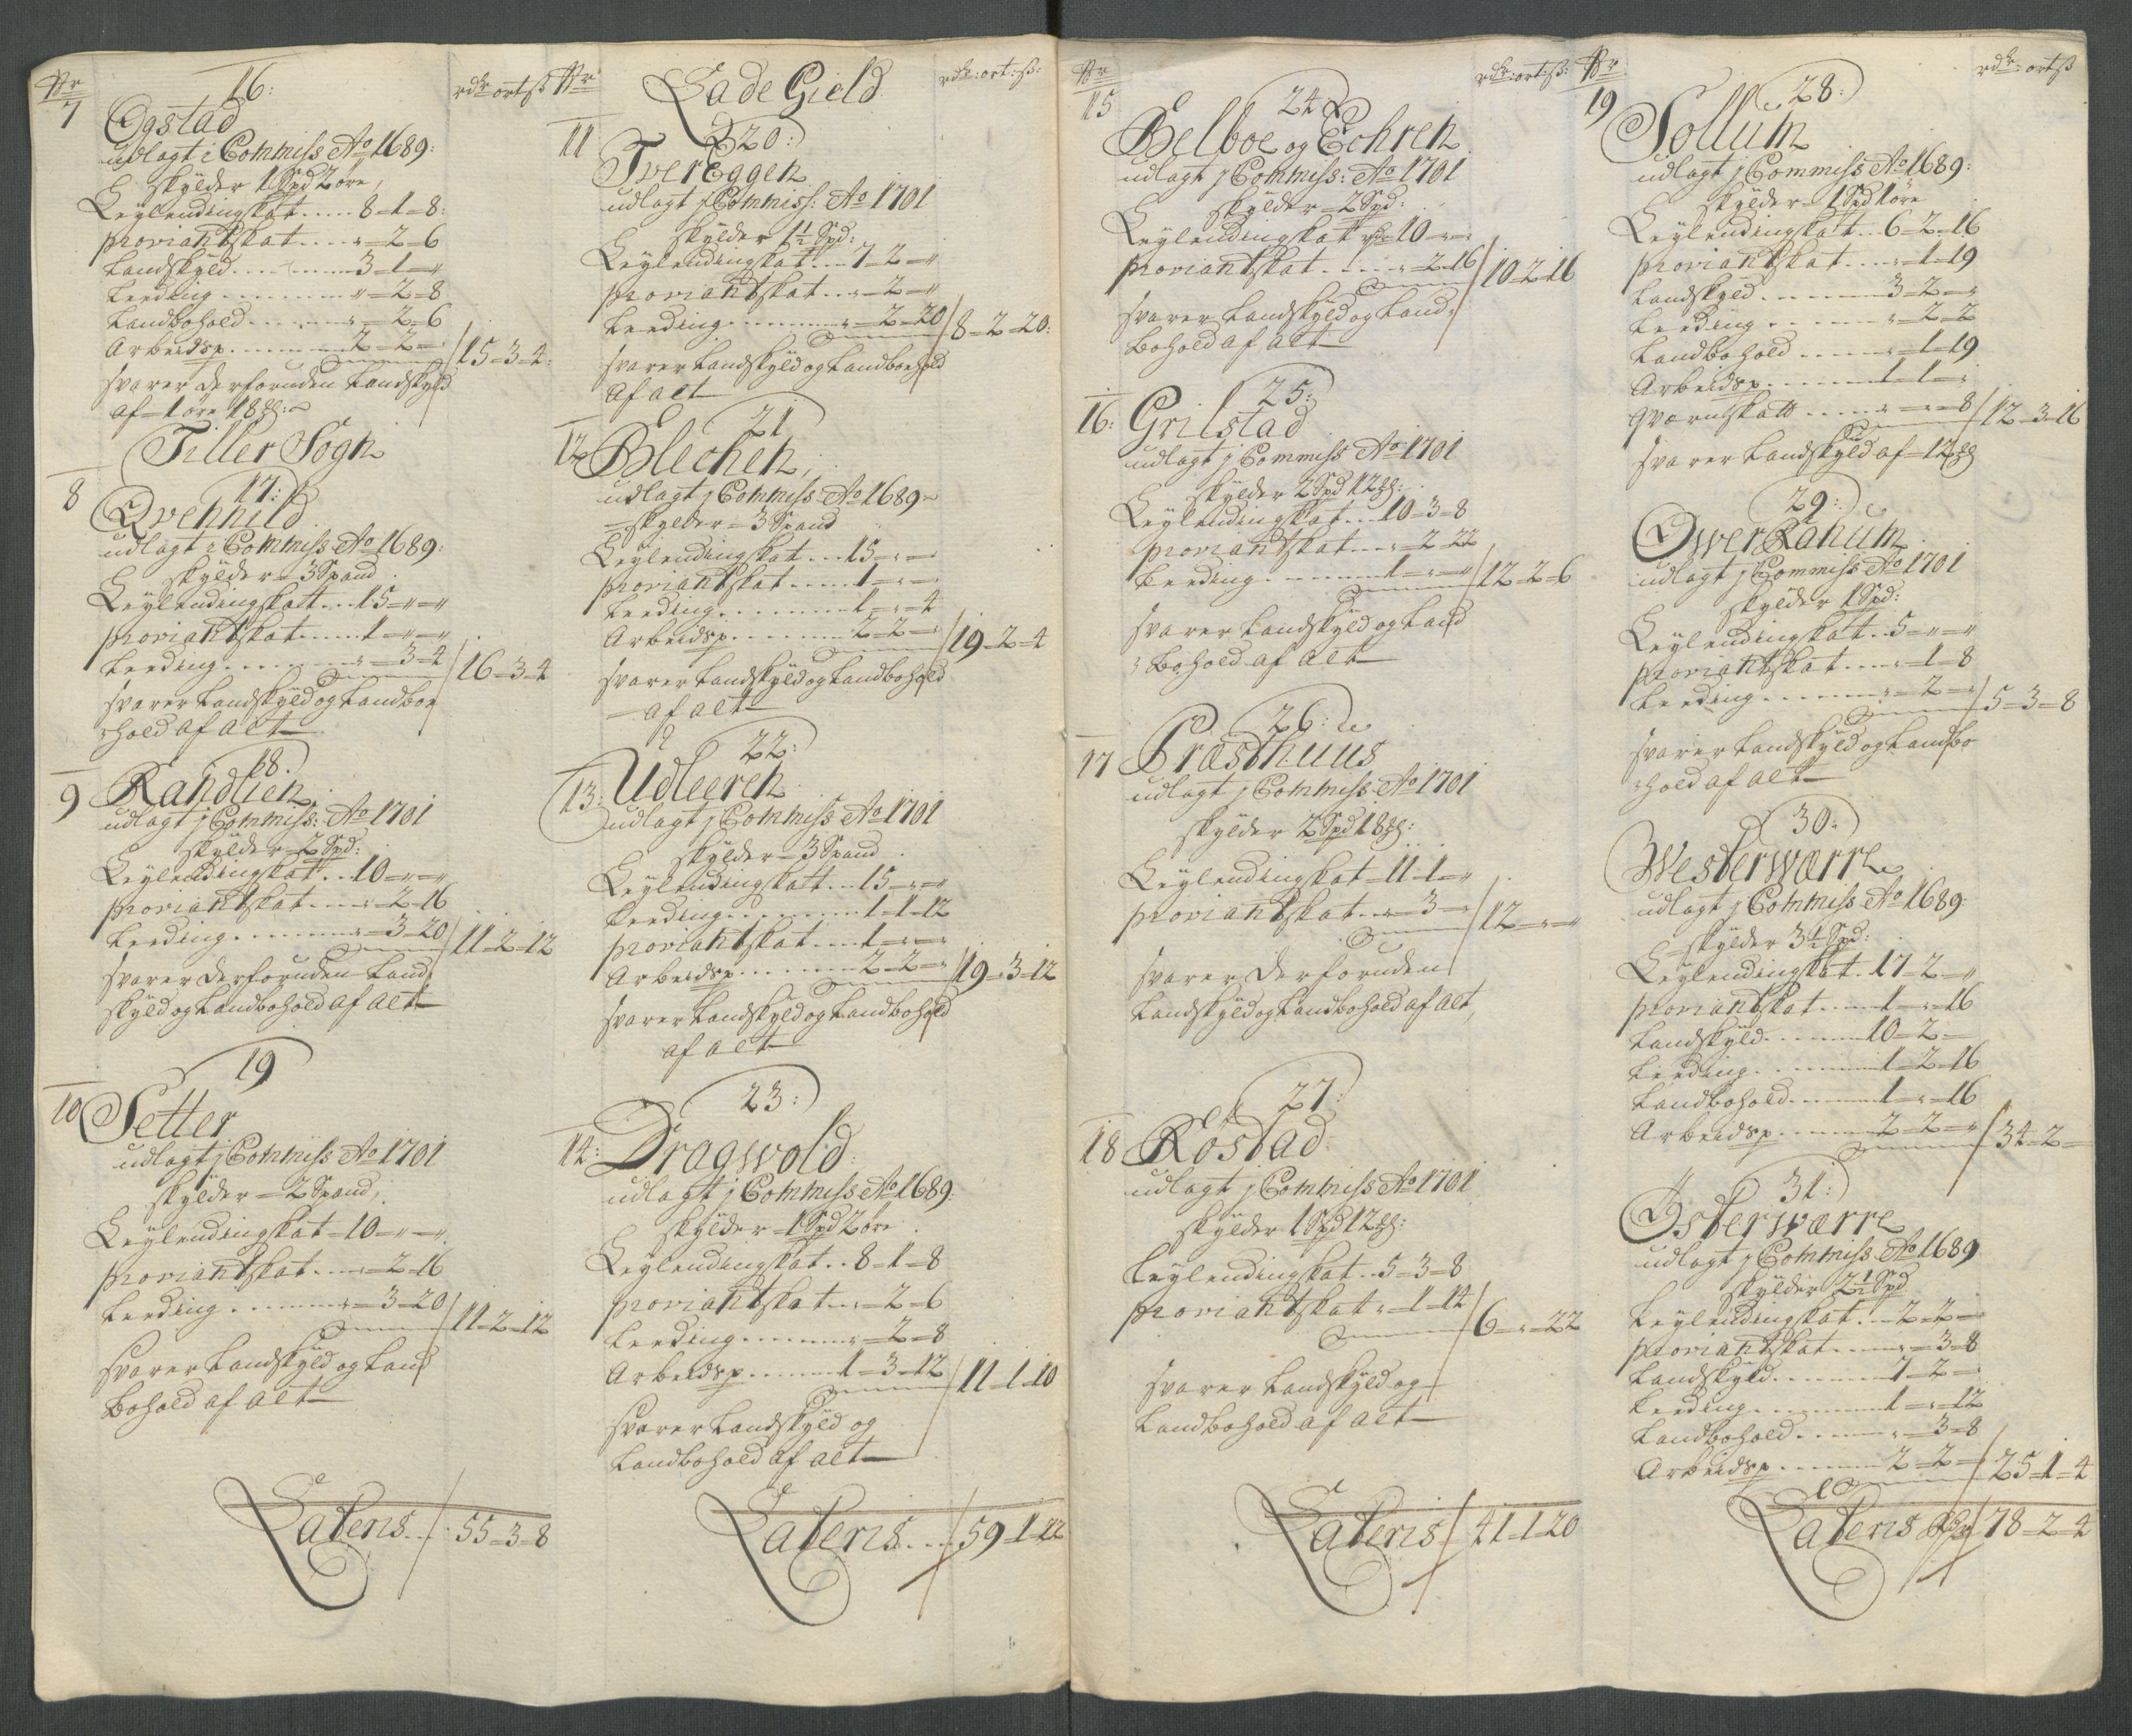 Nr
rdr ort ß
16:
7
Ogstad
udlagt i Commiss Ao 1689:
skylder 1 Spd 2 öre,
Leylendingskat ..... 8=1=8:
proviantskat .... "=2=6
Landskyld ........ 3=1="
Leeding ........ "=2=8
Landbohold ....... "=2=6
Arbeidsp. ........ 2=2="
15=3=4:
svarer derforuden Landskyld
af 1 öre 18 ₰:
Tiller Sogn
17:
8
Qvenhild
udlagt i Commiss Ao 1689:
skylder 3 Spand
Leylendingskatt ... 15="="
proviantskat ..... 1="="
Leeding ........ "=3=4
16=3=4
svarer Landskyld og Landboe
hold af alt
18.
9
Randlien
udlagt j Commiss: Ao 1701
skylder 2 Spd:
Leylendingskat .. 10="="
proviantskat .... "=2=16
Leeding ....... "=3=20
11=2=12
svarer derforuden Land
skyld og Landbohold af alt
19
10
Setter
udlagt j Commiss Ao 1701
skylder 2 Spand,
Leylendingskat 10="="
proviantskat .... "=2=16
Leeding ....... "=3=20
11=2=12
svarer Landskyld og Land
Bohold af alt
Lateris ... 55=3=8
Nr
Lade Gield
rdr: ort: ß:
20:
11
Tver Eggen
udlagt j Commiss: Ao 1701
skylder 1½ Spd:
Leylendingskat ... 7=2="
proviantskat .. "=2="
Leeding ....... "=2=20
8=2=20:
svarer Landskyld og Landboehold
af alt
21
12
Blechen,
udlagt j Commiss Ao 1689
skylder 3 Spand
Leylendingskat ... 15="="
proviantskat ..... 1="="
Leeding ........ 1="=4
Arbeidsp. ....... 2=2="
19=2=4
svarer Landskyld og Landbohold
af alt
22:
13:
Udleeren
udlagt j Commiss Ao 1701
skylder 3 Spand
Leylendingskatt ... 15="="
Leeding ........ 1=1=12
proviantskat .... 1="="
Arbeidsp. ....... 2=2="
19=3=12
svarer Landskyld og Landbohold
af alt
23:
14:
Dragwold
udlagt j Commiss Ao 1689:
skylder 1 Spd 2 öre
Leylendingskat .. 8=1=8
proviantskat ... "=2=6
Leeding ....... "=2=8
Arbeidsp. ...... 1=3=12
11=1=10
svarer Landskyld og
Landbohold af alt
Lateris .... 59=1=22
Nr
rdr: ort: ß:
24
15
Belboe og Echren
udlagt j Commiss: Ao 1701
skylder 2 Spd:
Leylendingskat rdr 10="="
proviantskat ...... "=2=16
10=2=16
svarer Landskyld og Land
Bohold af alt
25:
16:
Grilstad
udlagt j Commiss Ao 1701
skylder 2 Spd 12 ₰:
Leylendingskat ... 10=3=8
proviantskat .... "=2=22
Leeding ........ 1="="
12=2=6
svarer Landskyld og Land
Bohold af alt
26:
17
Præsthuus
udlagt j Commiss Ao 1701
skylder 2 Spd 18 ₰:
Leylendingskat 11=1="
proviantskat ... "=3="
12="="
svarer derforuden
Landskyld og Landbohold af alt,
27:
18
Röstad
udlagt j Commiss Ao 1701
skylder 1 Spd 12 ₰:
Leylendingskat .. 5=3=8
proviantskat "=1=14
6="=22
svarer Landskyld og
Landbohold af alt
Lateris 41=1=20
Nr
rdr: ort ß
28:
19
Sollum
udlagt j Commiss Ao 1689:
skylder 1 Spd 1 öre
Leylendingskatt .. 6=2=16
proviantskat .... "=1=19
Landskyld ....... 3=2="
Leeding ....... "=2=2
Landbohold ..... "=1=19
Arbeidsp. ....... 1=1="
Qvernskatt ..... "="=8
12=3=16
svarer Landskyld af 12 ₰
29:
Ower Ranum
udlagt j Commiss Ao 1701
skylder 1 Spd:
Leylendingskatt .. 5="="
proviantskat .... "=1=8
Leeding ........ "=2="
5=3=8
svarer Landskyld og Landbo
hold af alt
30:
Westerwærre
udlagt j Commiss Ao 1689:
skylder 3½ Spd:
Leylendingskat . 17=2="
proviantskat ..... 1="=16
Landskyld ....... 10=2=
Leeding ........ 1=2=16
Landbohold ...... 1="=16
Arbeidsp. ....... 2=2="
34=2=
31:
Österwærre
udlagt j Commiss Ao 1689
skylder 2½ Spd
Leylendingskat ... 2=2=
proviantskat ..... "=3=8
Landskyld ........ 7=2="
Leeding ......... 1="=12
Landbohold ...... "=3=8
Arbeidsp. ....... 2=2="
25=1=4
Lateris 78=2=4